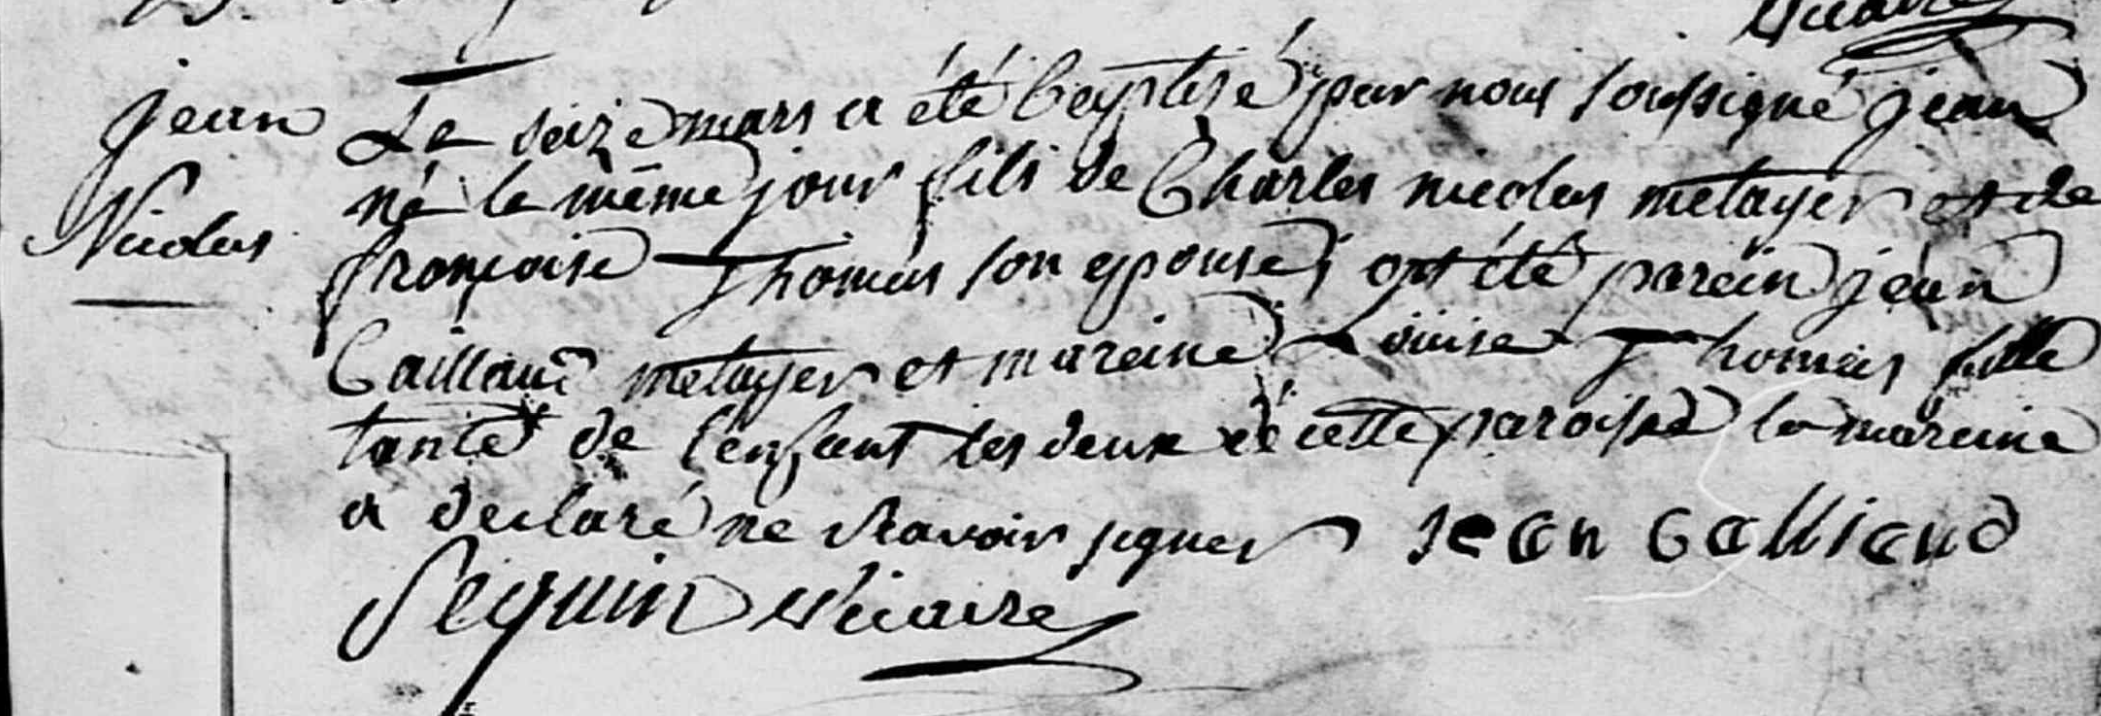 Vicaire
jean
Nicolas
Le seize mars a été baptisé par nous soussigné jean
né le même jour fils de Charles nicolas metayer et de
françoise Thomas son epouse, ont été parein jean
Caillaud metayer et mareine Loüise Thomas fille
tante de l'enfant les deux de cette paroisse la mareine
a declaré ne sçavoir signer jean calliaud
Seguin Vicaire